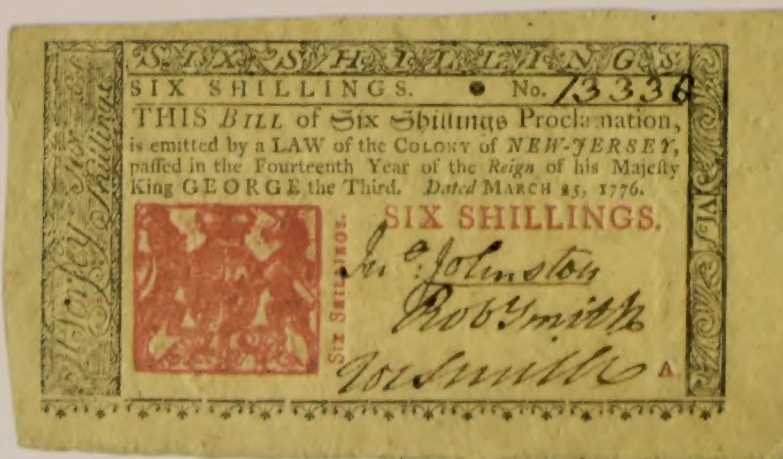 SIX SHILLINGS
SIX SHILLINGS. No. 13336
THIS BILL of Six Shillings Proclamation,
is emitted by a LAW of the COLONY of NEW-JERSEY,
paſſed in the Fourteenth Year of the Reign of his Majeſty
King GEORGE the Third. Dated MARCH 25, 1776.
SIX SHILLINGS.
SIX SHILLINGS.
Jno. Johnston
Rob Smith
Jos Smith
A
Jerſey Six
Shillings
VI s